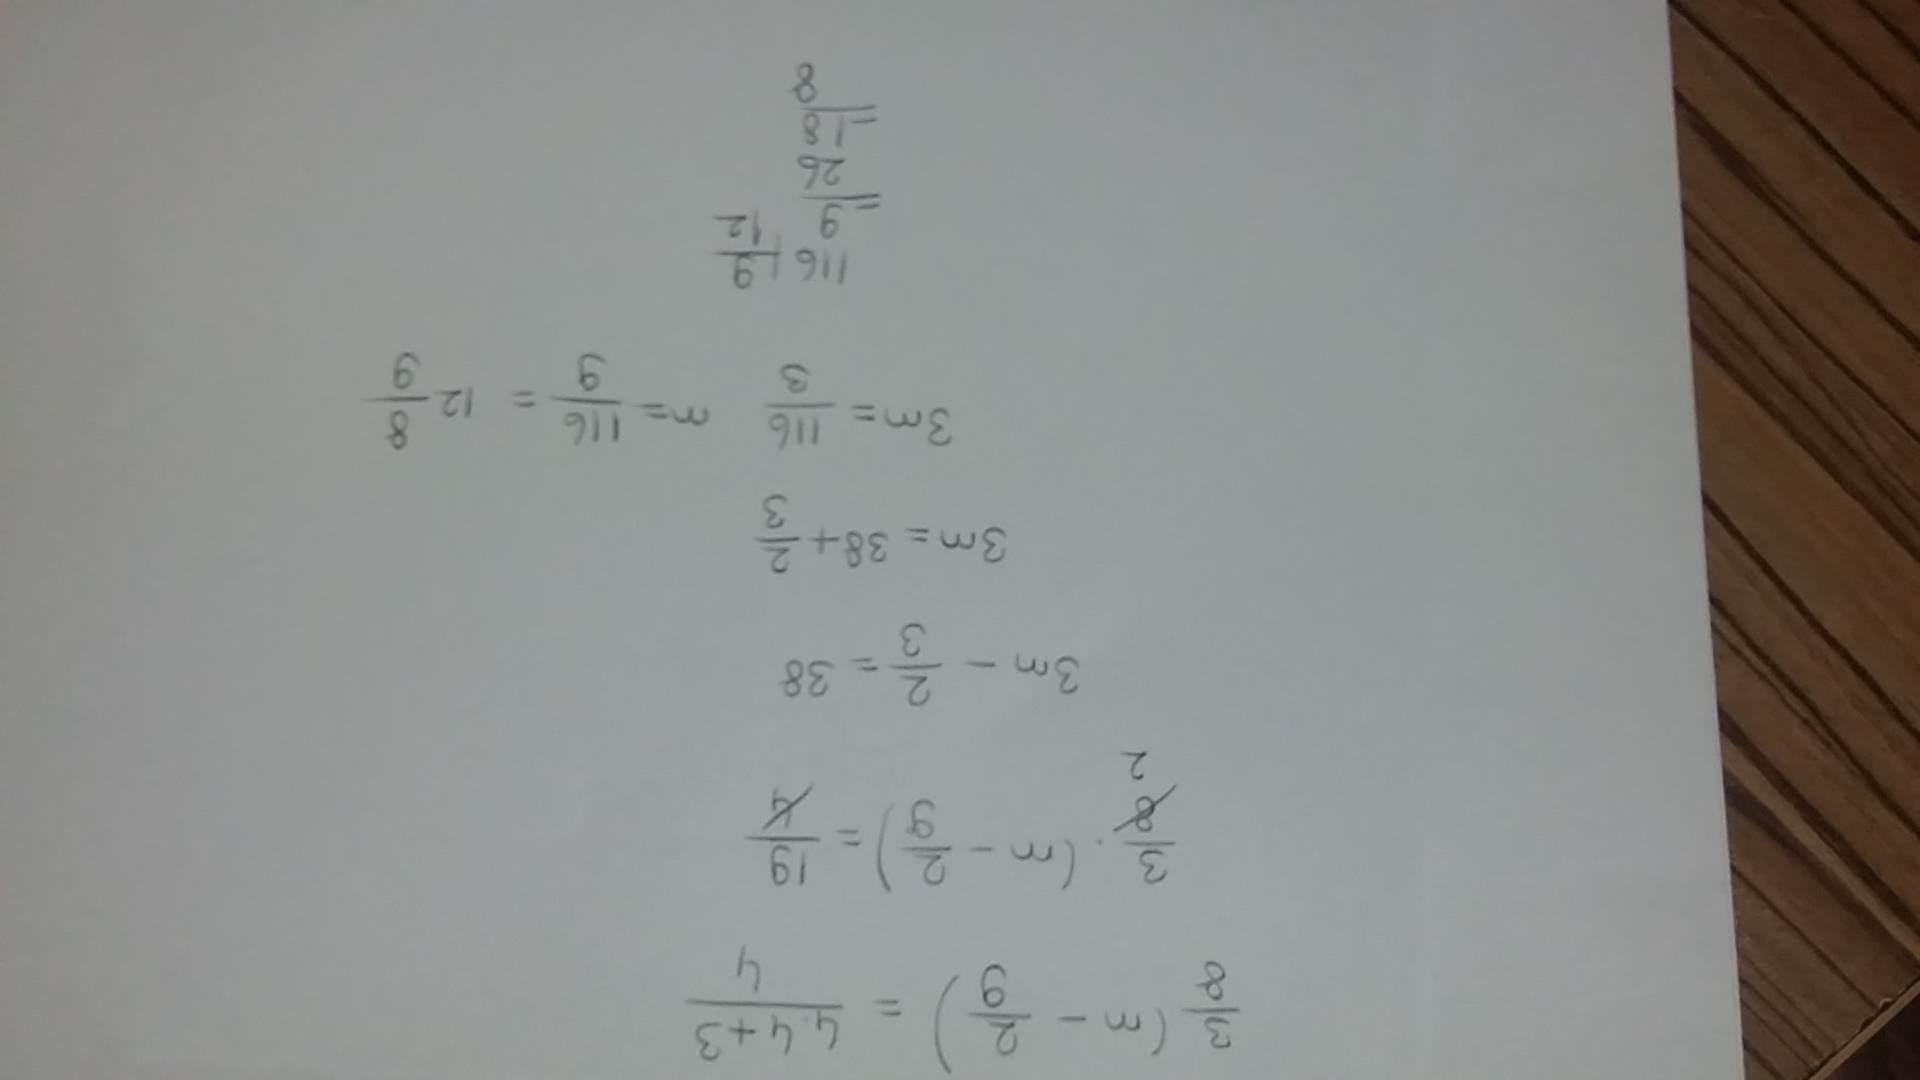 3/8 (m - 2/9) = 4·4+3/4
3/8 · (m - 2/9) = 19/4
2
3m - 2/3 = 38
3m = 38 + 2/3
3m = 116/3 m = 116/9 = 12 8/9
116 | 9
9 12
= 26
18
= 8